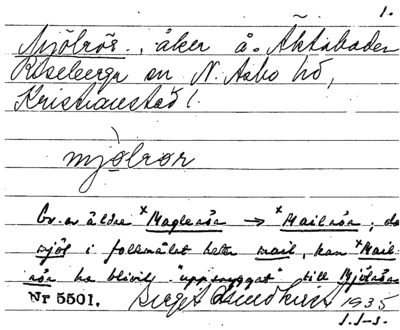 1.
Mjölrör, åker å. Äktaboden
Röseberga sn N. Åsbo hd,
Kristianstad l.
mjölrör
Ev. av äldre *Maglerör → *Mailrör; då
mjöl i folkmålet hette mail, kan *Mail-
rör ha blivit "uppsnyggat" till Mjölrör.
Nr 5501. Birgit 1935